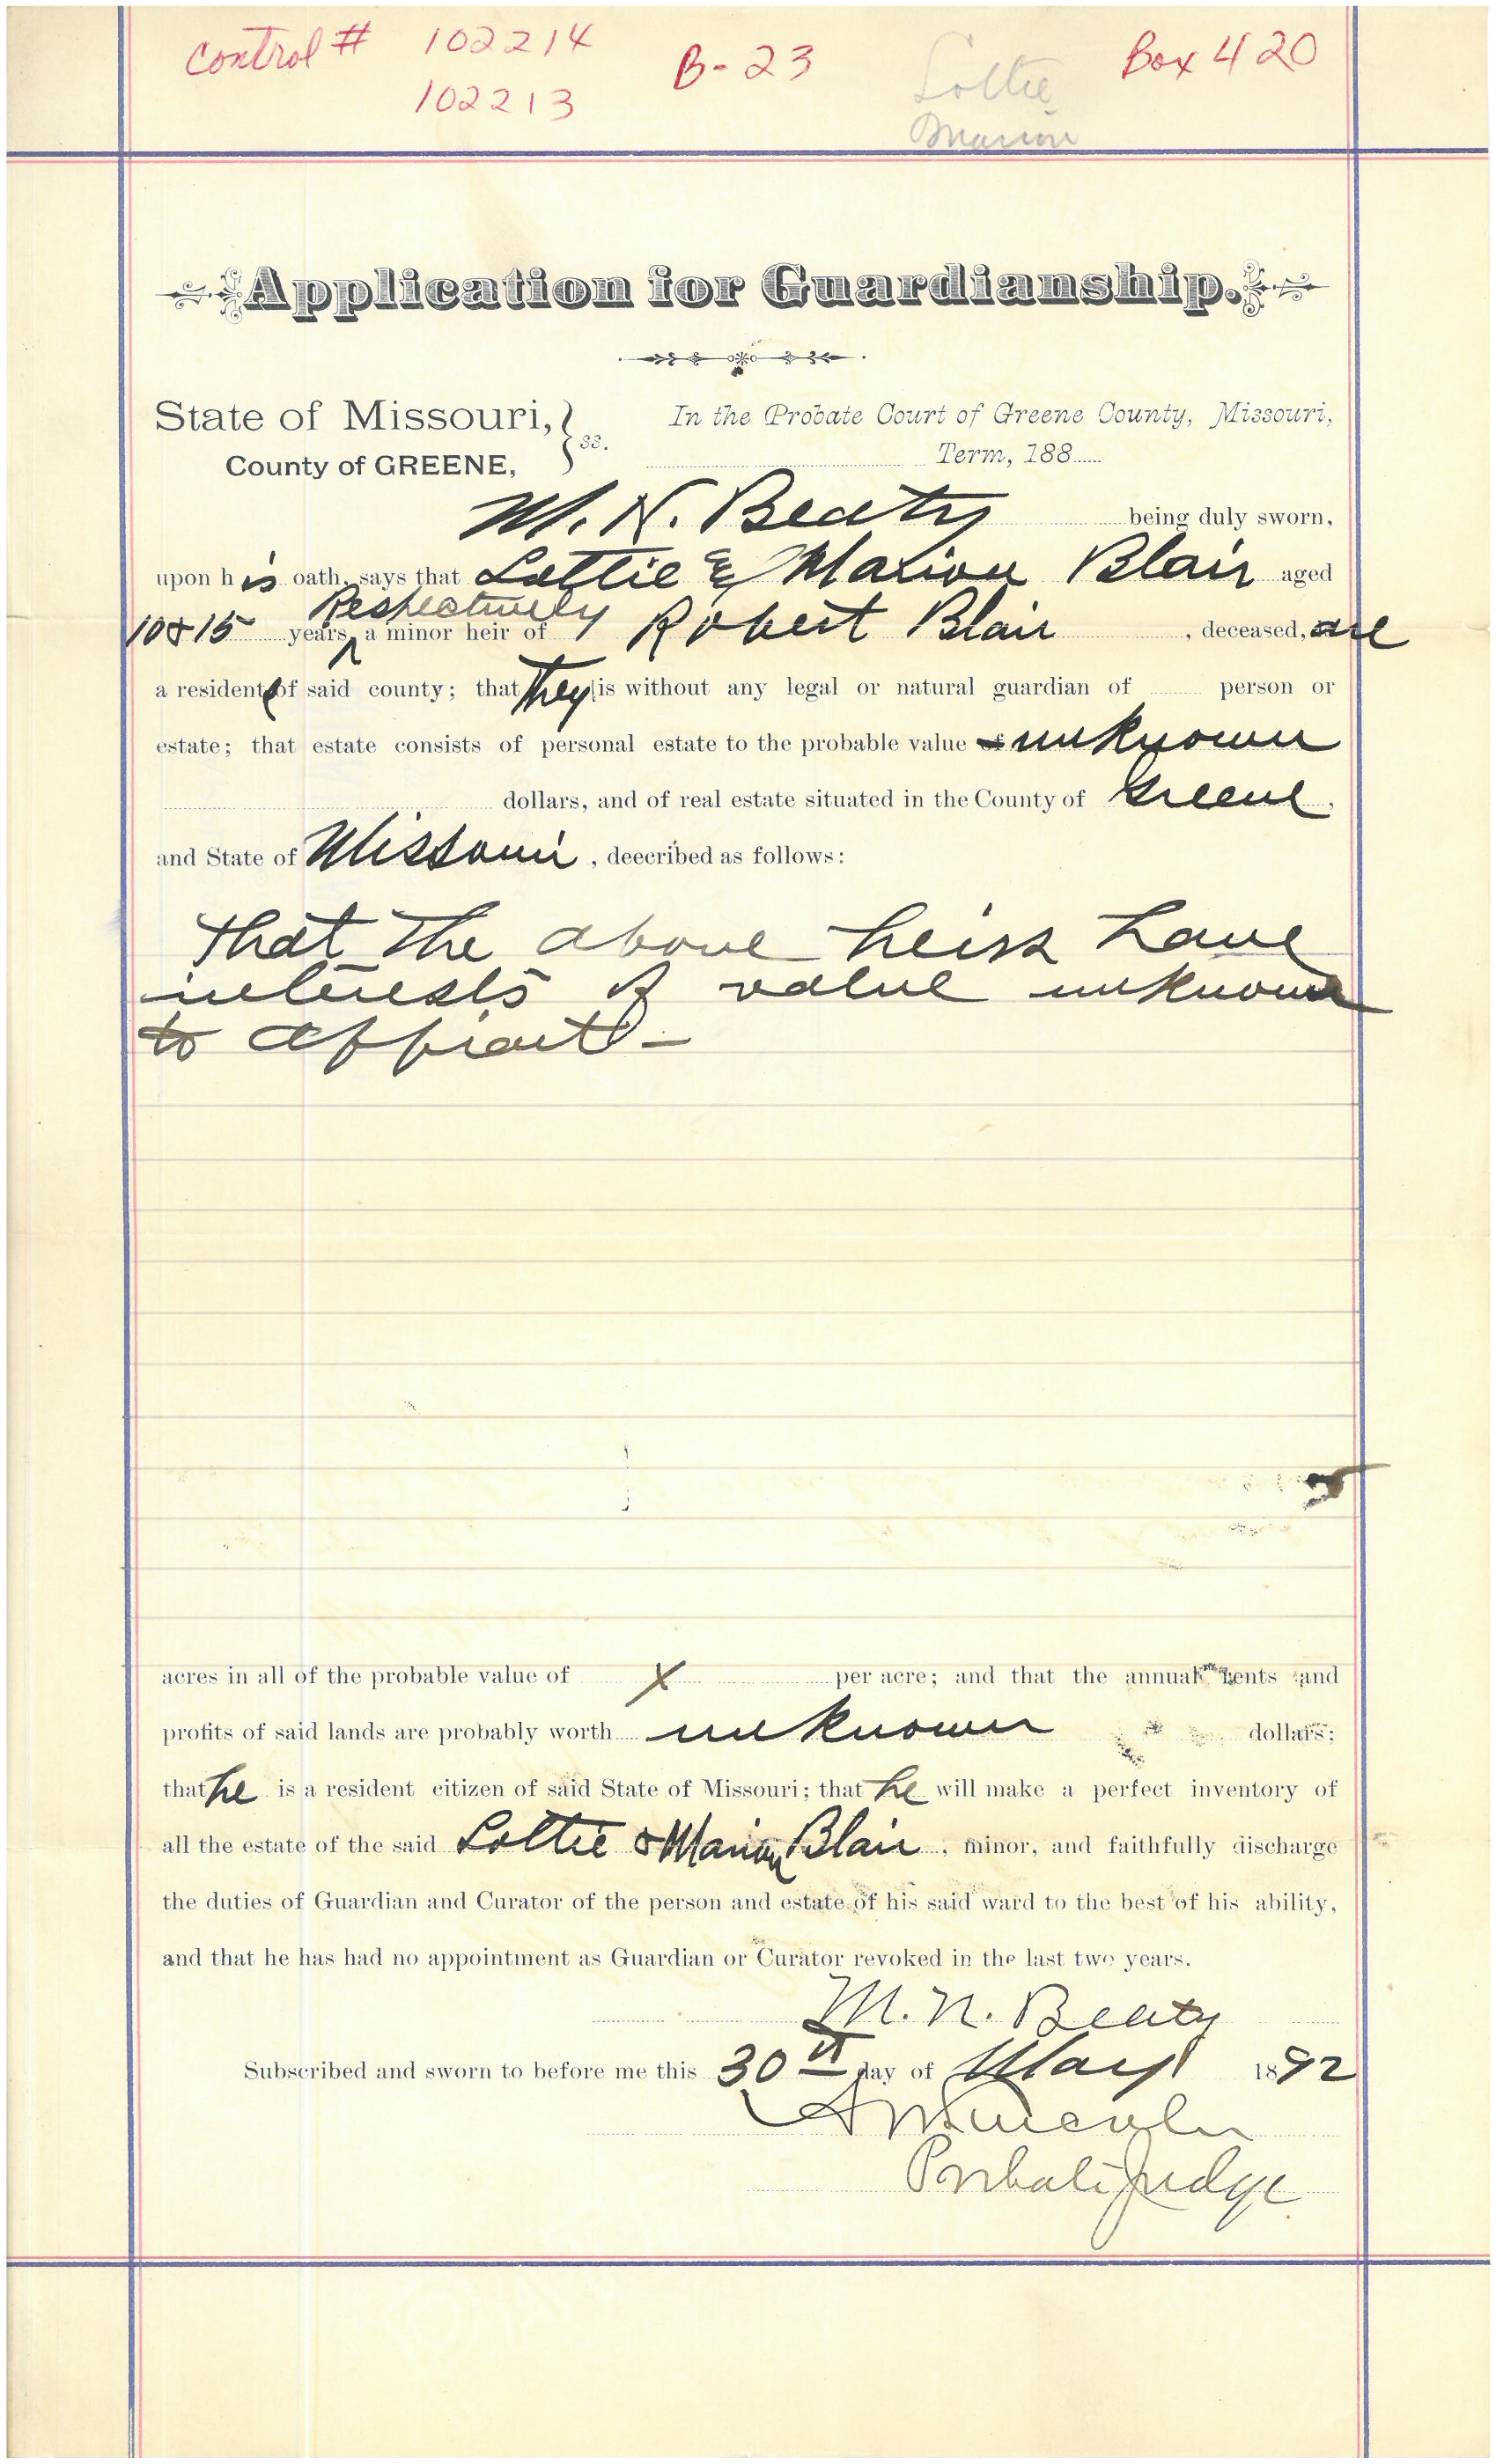 Control # 102214 B-23 Lottie Box 420
102213 Marion
Application for Guardianship.
State of Missouri, } ss. In the Probate Court of Greene County, Missouri,
County of GREENE, Term, 188
M. N. Beaty being duly sworn,
upon his oath, says that Lottie & Marion Blair aged
10 & 15 years, Respectively a minor heir of Robert Blair , deceased, are
a resident of said county; that They is without any legal or natural guardian of person or
estate; that estate consists of personal estate to the probable value of unknown
dollars, and of real estate situated in the County of Greene,
and State of Missouri, deecribed as follows:
that The above heirs have
interests of value unknown
to affiant -
acres in all of the probable value of X per acre; and that the annual rents and
profits of said lands are probably worth unknown dollars;
that he is a resident citizen of said State of Missouri; that he will make a perfect inventory of
all the estate of the said Lottie & Marion Blair, minor, and faithfully discharge
the duties of Guardian and Curator of the person and estate of his said ward to the best of his ability,
and that he has had no appointment as Guardian or Curator revoked in the last two years.
M. N. Beaty
Subscribed and sworn to before me this 30th day of May 1892
Lincoln
Probate Judge